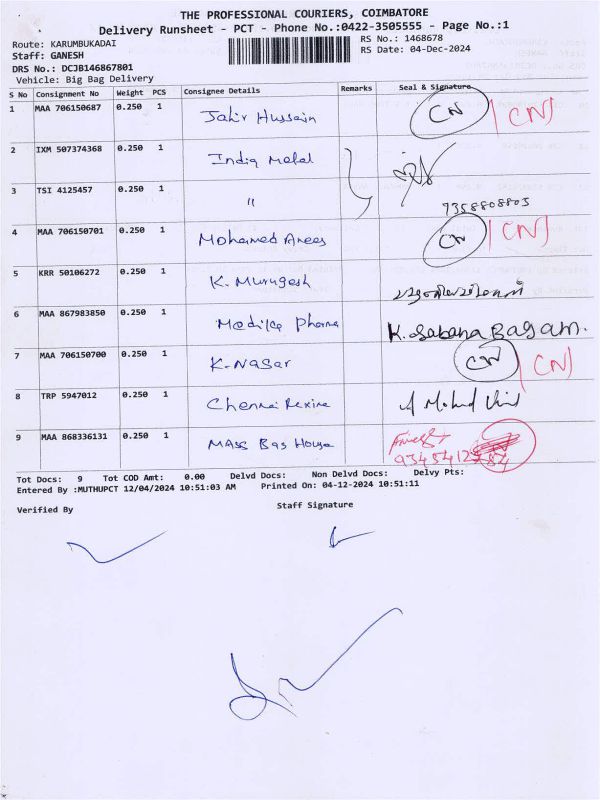 THE PROFESSIONAL COURIERS, COIMBATORE
Delivery Runsheet - PCT - Phone No.:0422-3505555 - Page No.:1
Route: KARUMBUKADAI
RS No.: 1468678
Staff: GANESH
RS Date: 04-Dec-2024
DRS No.: DCJB146867801
Vehicle: Big Bag Delivery
S No Consignment No Weight PCS Consignee Details Remarks Seal & Signature
1 MAA 706150687 0.250 1 Jahir Hussain CN CN
2 IXM 507374368 0.250 1 India Metal
3 TSI 4125457 0.250 1 " 9358808803
4 MAA 706150701 0.250 1 Mohamed Anees CN CN
5 KRR 50106272 0.250 1 K. Murugesh
6 MAA 867983850 0.250 1 Pharma K. Sabana Bagam.
7 MAA 706150700 0.250 1 K. Nasar CN CN
8 TRP 5947012 0.250 1 Chennai Rexine
9 MAA 868336131 0.250 1 MASS Bag House
Tot Docs: 9 Tot COD Amt: 0.00 Delvd Docs: Non Delvd Docs: Delvy Pts:
Entered By :MUTHUPCT 12/04/2024 10:51:03 AM Printed On: 04-12-2024 10:51:11
Verified By Staff Signature